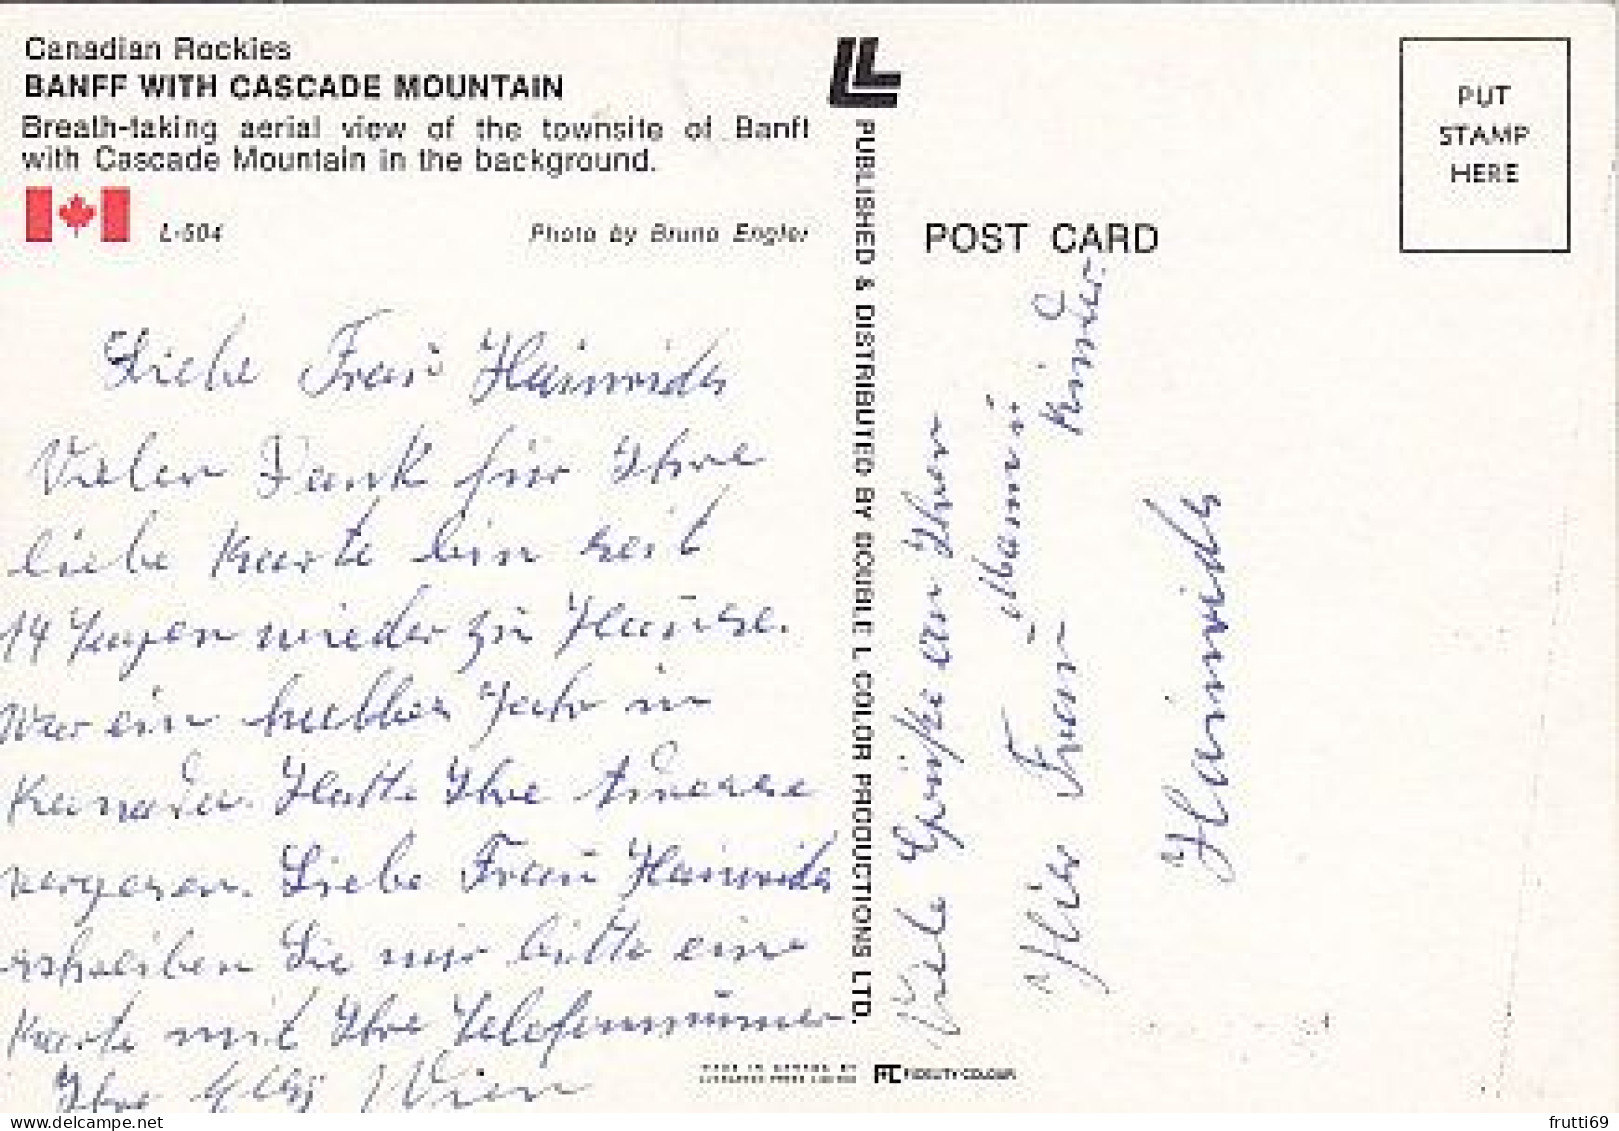 Canadian Rockies
BANFF WITH CASCADE MOUNTAIN
Breath-taking aerial view of the townsite of Banff
with Cascade Mountain in the background.
L-504
Photo by Bruno Engler
PUBLISHED & DISTRIBUTED BY DOUBLE L COLOR PRODUCTIONS LTD.
POST CARD
PUT
STAMP
HERE
Liebe Frau
Vielen Dank für Ihre
liebe Karte bin seit
14 Tagen wieder zu Hause.
War ein halbes Jahr in
Kanada. Hatte Ihre Adresse
vergesen. Liebe Frau
schreiben Sie mir bitte eine
Karte mit Ihre Telefonnummer
Ihre Wien
Viele Grüße an Ihren
Frau
Kinder
FIDELITY COLOUR
frutti69